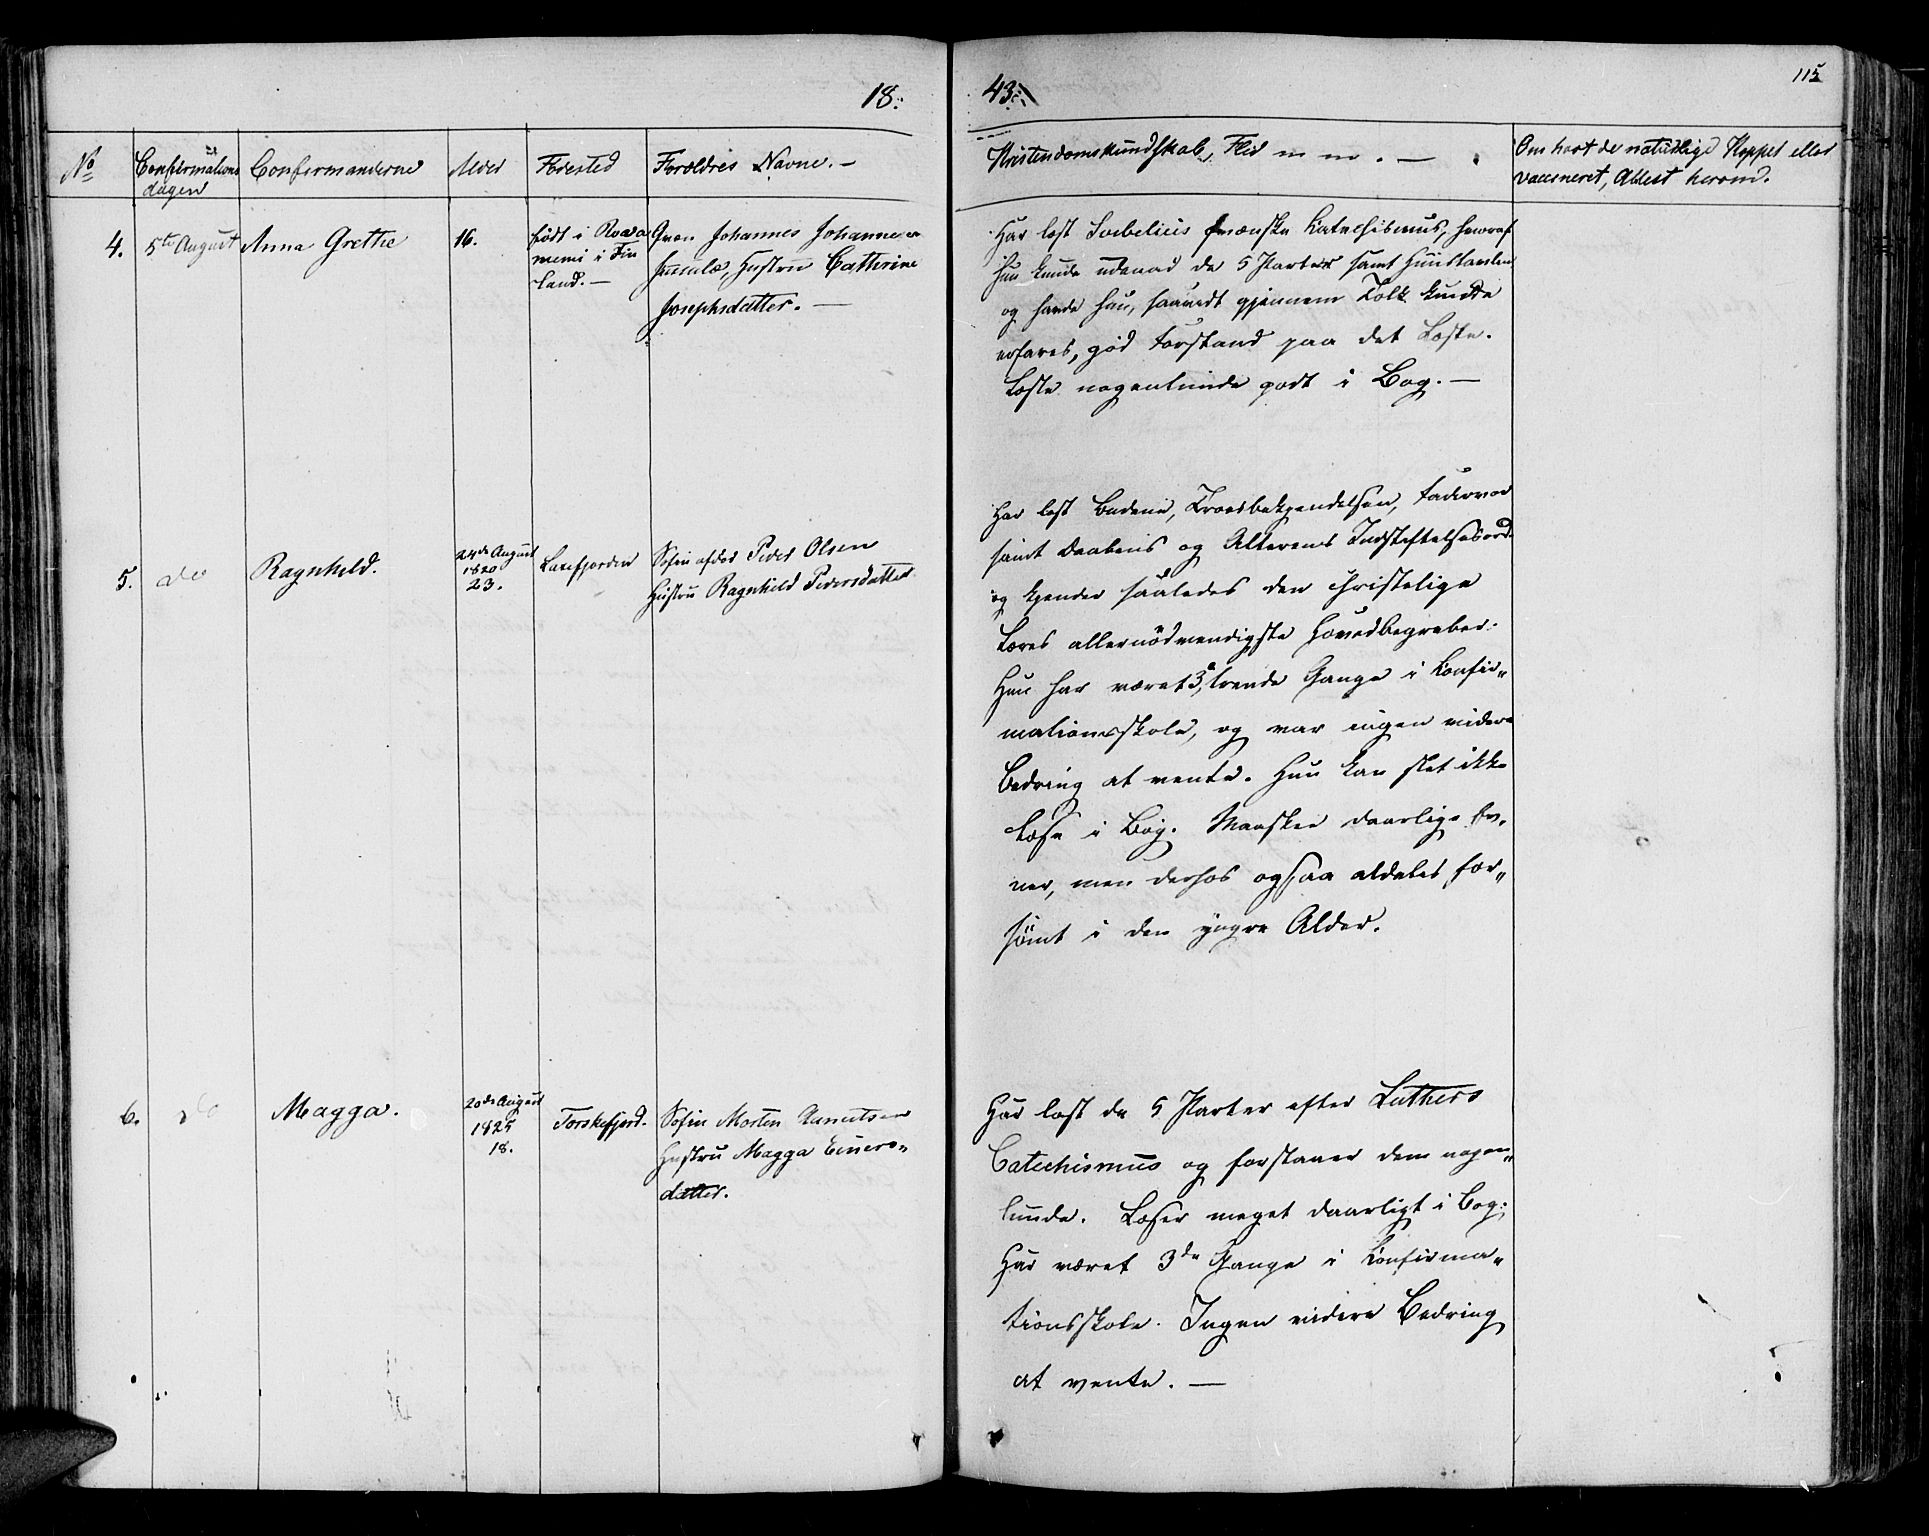 18.
43.
115
No
Confirmations
dagen
Confirmanderne
Alder
Födested
Forældres Navne. —
Kristendomskundskab, Flid m m. —
Om havt de naturlige Kopper eller
vaccineret, Attest herom.
4.
5te August
Anna Grethe
16.
født i Rova
niemi i Fin
land. —
Qvæn Johannes Johannesen
Hustru Cathrine
Josephsdatter. —
Har læst Svebelius svænske Katechismus, hvoraf
hun kunde udenad de 5 Parter samt Huustavlen
og havde hun, saavidt gjennem Tolk kunde
erfares, god Forstand paa det Læste.
Læste nogenlunde godt i Bog. —
5.
do
Ragnhild.
24de August
1820
23.
Laxefjorden
Søfin afdøde Peder Olsen
Hustru Ragnhild Pedersdatter
Har læst Budene, Troesbekjendelsen, Fadervor
samt Daabens og Alterens Indstiftelsesord
og kjender saaledes den christelige
Læres allernödvendigste Hovedbegreber.
Hun har været 3, trende Gange i Konfir„
mationsskole, og var ingen videre
Bedring at vente. Hun kan slet ikke
læse i Bog. Maaskee daarlige Ev„
ner, men derhos ogsaa aldeles for„
sömt i den yngre Alder.
6.
do
Magga.
20de August
1825
18.
Torskefjord.
Søfin Morten Knudsen
Hustru Magga Einers„
datter.
Har læst de 5 Parter efter Luthers
Catechismus og forstaaer dem nogen„
lunde. Læser meget daarligt i Bog.
Har været 3de Gange i Konfirma„
tionsskole. Ingen videre Bedring
at vente. —